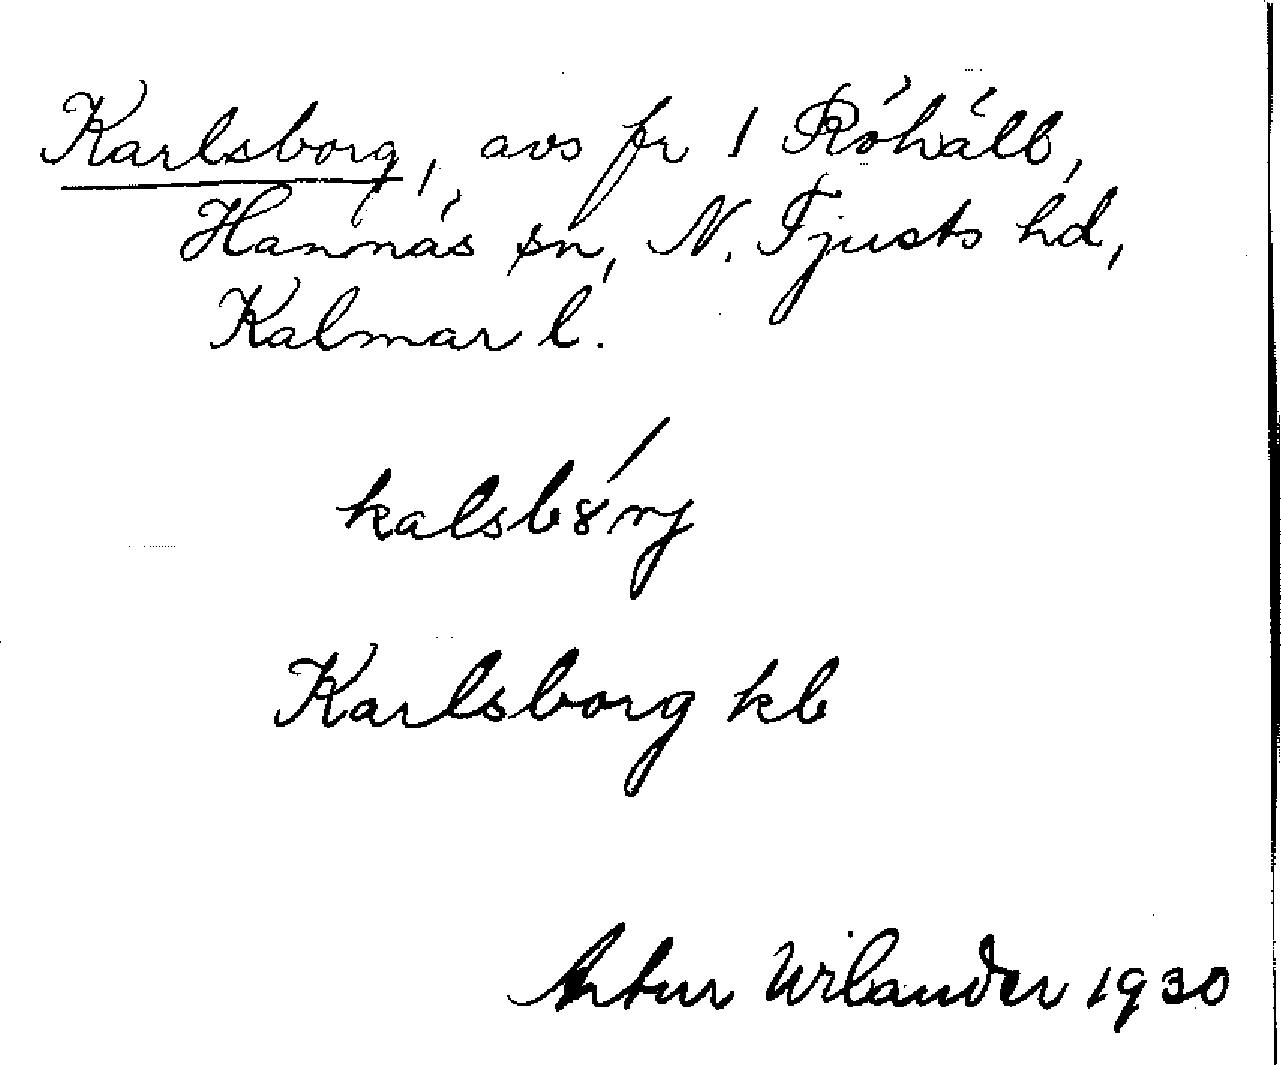 Karlsborg, avs fr 1 Röhäll,
Hannäs sn, N. Tjusts hd,
Kalmar l.
kalsbȣ́rj
Karlsborg kb
Artur Wilander 1930